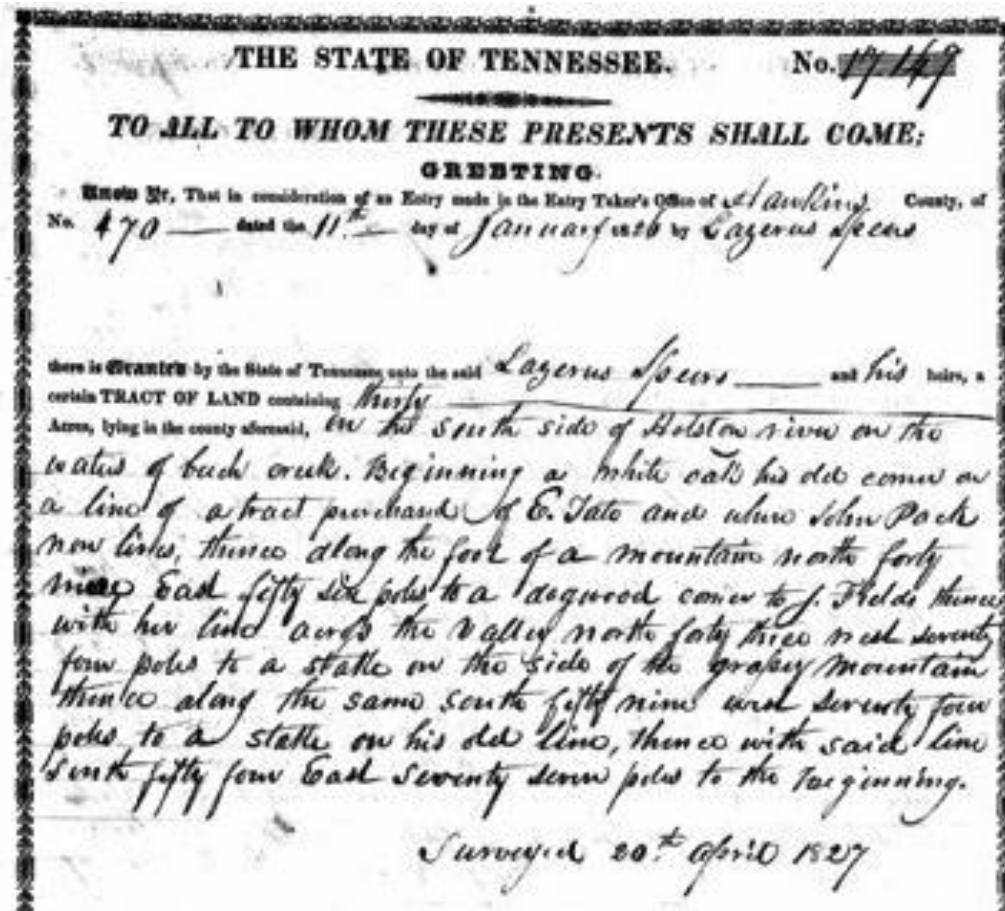 THE STATE OF TENNESSEE. No. 17149
TO ALL TO WHOM THESE PRESENTS SHALL COME;
GREETING.
Know Ye, That in consideration of an Entry made in the Entry Taker's Office of Hawkins County, of
No. 470 — dated the 11th — day of January 1826 by Lazerus Spears
there is Granted by the State of Tennessee unto the said Lazerus Spears — and his heirs, a
certain TRACT OF LAND containing thirty
Acres, lying in the county aforesaid, on the south side of Holston river on the
waters of buck creek. Beginning a white oak his old corner on
a line of a tract purchased of E. Tate and where John Pack
now lives, thence along the foot of a mountain north forty
East fifty six poles to a dogwood corner to J. Fields thence
with her line across the valley north forty three west seventy
four poles to a stake on the side of the mountain
thence along the same south fifty nine west seventy four
poles to a stake on his old line, thence with said line
south fifty four East seventy seven poles to the beginning.
Surveyed 20th April 1827